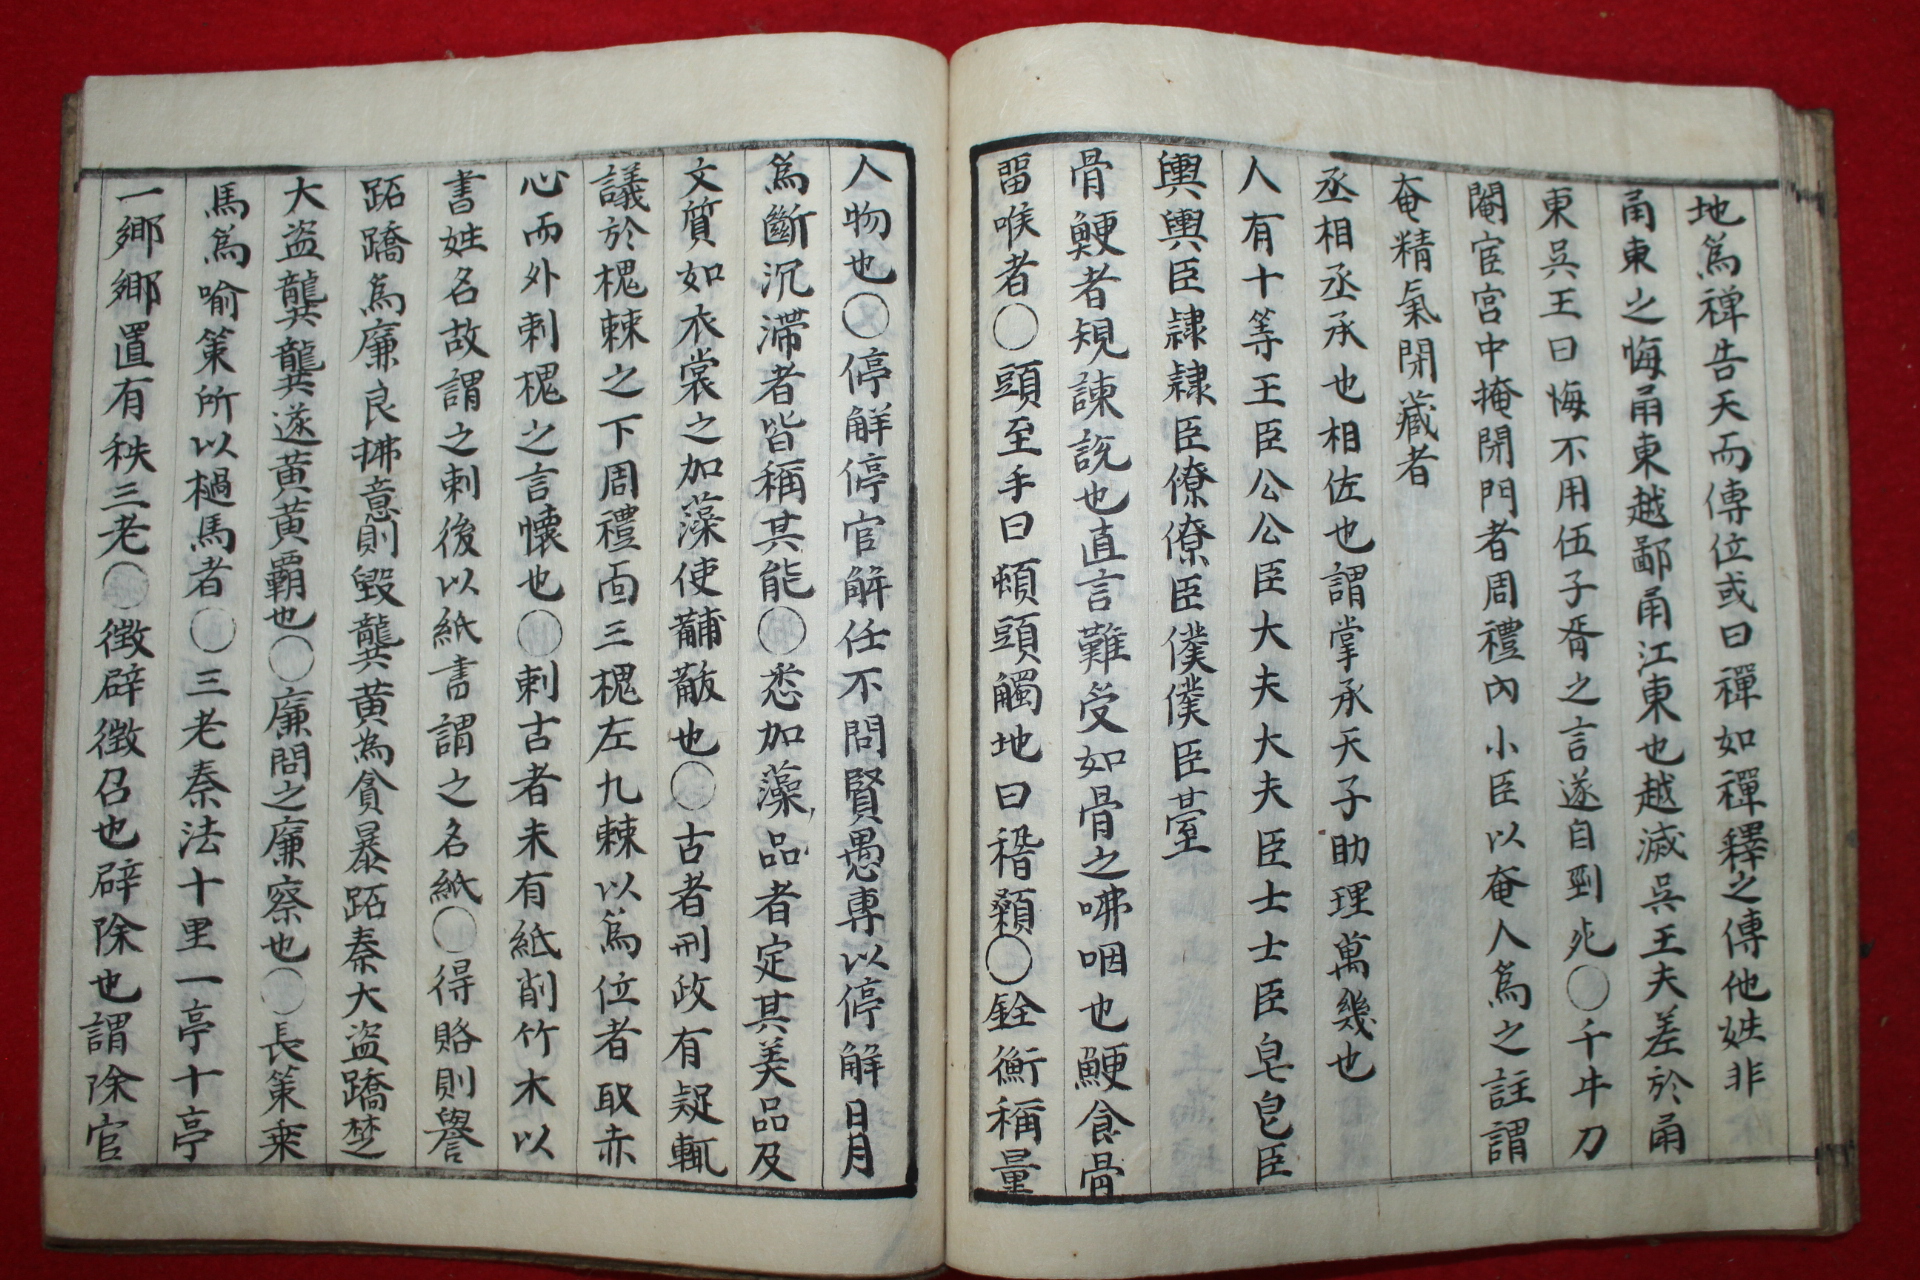 地爲禅告天而傳位或曰禪如禪釋之傳他姓非
甬東之悔甬東越鄙甬江東也越滅吳王夫差於甬
東吳王曰悔不用伍子胥之言遂自剄死〇千牛刀
閹宦宮中掩閉門者周禮內小臣以奄人爲之註謂
奄精氣閉藏者
丞相丞承也相佐也謂掌承天子助理萬幾也
人有十等王臣公公臣大夫大夫臣士士臣皂皂臣
輿輿臣隷隷臣僚僚臣僕僕臣䑓
骨鯁者規諫說也直言難受如骨之咈咽也鯁食骨
畱喉者〇頭至手曰頓頭觸地曰稽顙〇銓衡稱量
人物也〇停解停官解任不問賢愚專以停解日月
爲斷沉滯者皆稱其能〇悉加藻品者定其美品及
文質如衣裳之加藻使黼黻也〇古者刑政有疑輒
議於槐棘之下周禮面三槐左九棘以爲位者取赤
心而外刺槐之言懷也〇刺古者未有紙削竹木以
書姓名故謂之刺後以紙書謂之名紙〇得賂則譽
跖蹻爲廉良拂意則毀龔黄為貪暴跖秦大盜蹻楚
大盜龔龔遂黄黄覇也〇廉問之廉察也〇長策乘
馬爲喻策所以檛馬者〇三老秦法十里一亭十亭
一鄕鄕置有秩三老〇徵辟徵召也辟除也謂除官